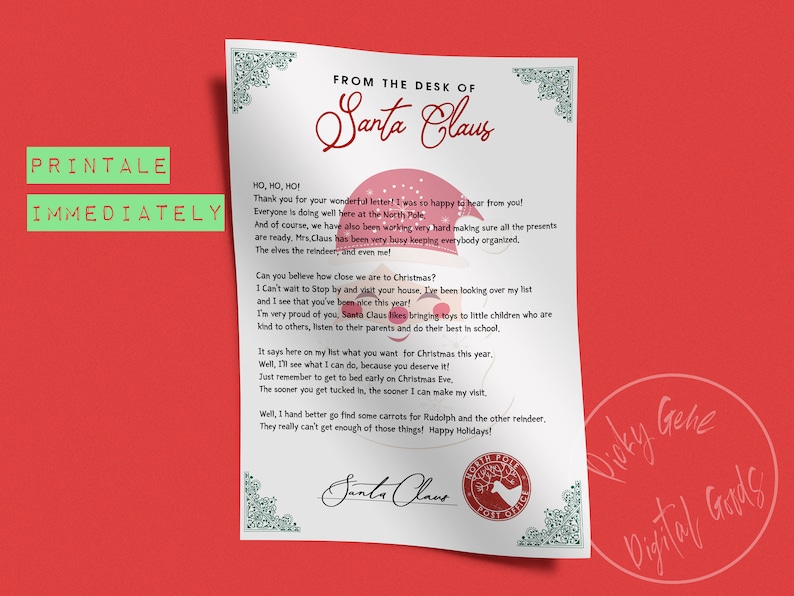 FROM THE DESK OF
Santa Claus
PRINTALE
IMMEDIATELY
HO, HO, HO!
Thank you for your wonderful letter! I was so happy to hear from you!
Everyone is doing well here at the North Pole.
And of course, we have also been working very hard making sure all the presents
are ready. Mrs.Claus has been very busy keeping everybody organized.
The elves the reindeer, and even me!
Can you believe how close we are to Christmas?
I Can't wait to Stop by and visit your house. I've been looking over my list
and I see that you've been nice this year!
I'm very proud of you. Santa Claus likes bringing toys to little children who are
kind to others, listen to their parents and do their best in school.
It says here on my list what you want for Christmas this year.
Well, I'll see what I can do, because you deserve it!
Just remember to get to bed early on Christmas Eve.
The sooner you get tucked in, the sooner I can make my visit.
Well, I hand better go find some carrots for Rudolph and the other reindeer.
They really can't get enough of those things! Happy Holidays!
Santa Claus
NORTH POLE
POST OFFICE
Digital Goods